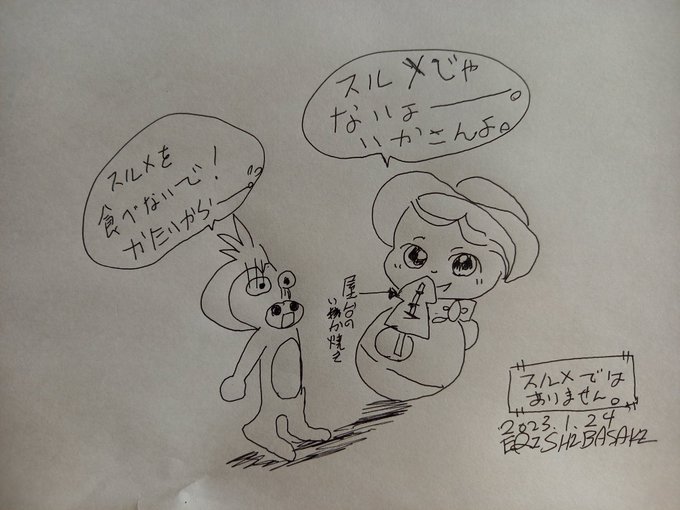 スルメを
食べないで！
かたいから！
スルメじゃ
ないよー。
いかさんよ。
屋台の
いか焼き
"スルメでは
ありません。"
2023.1.24